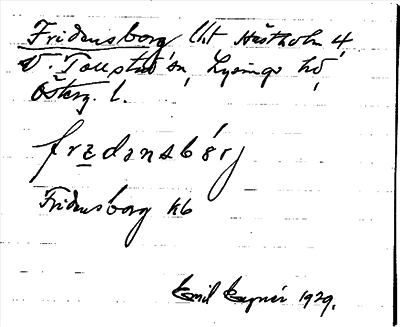 Fridensborg lht Hästholm 4,
V. Tollstad sn, Lysings hd
Österg. l.
fredensbórj
Fridensborg kb
Emil Egnér 1929.